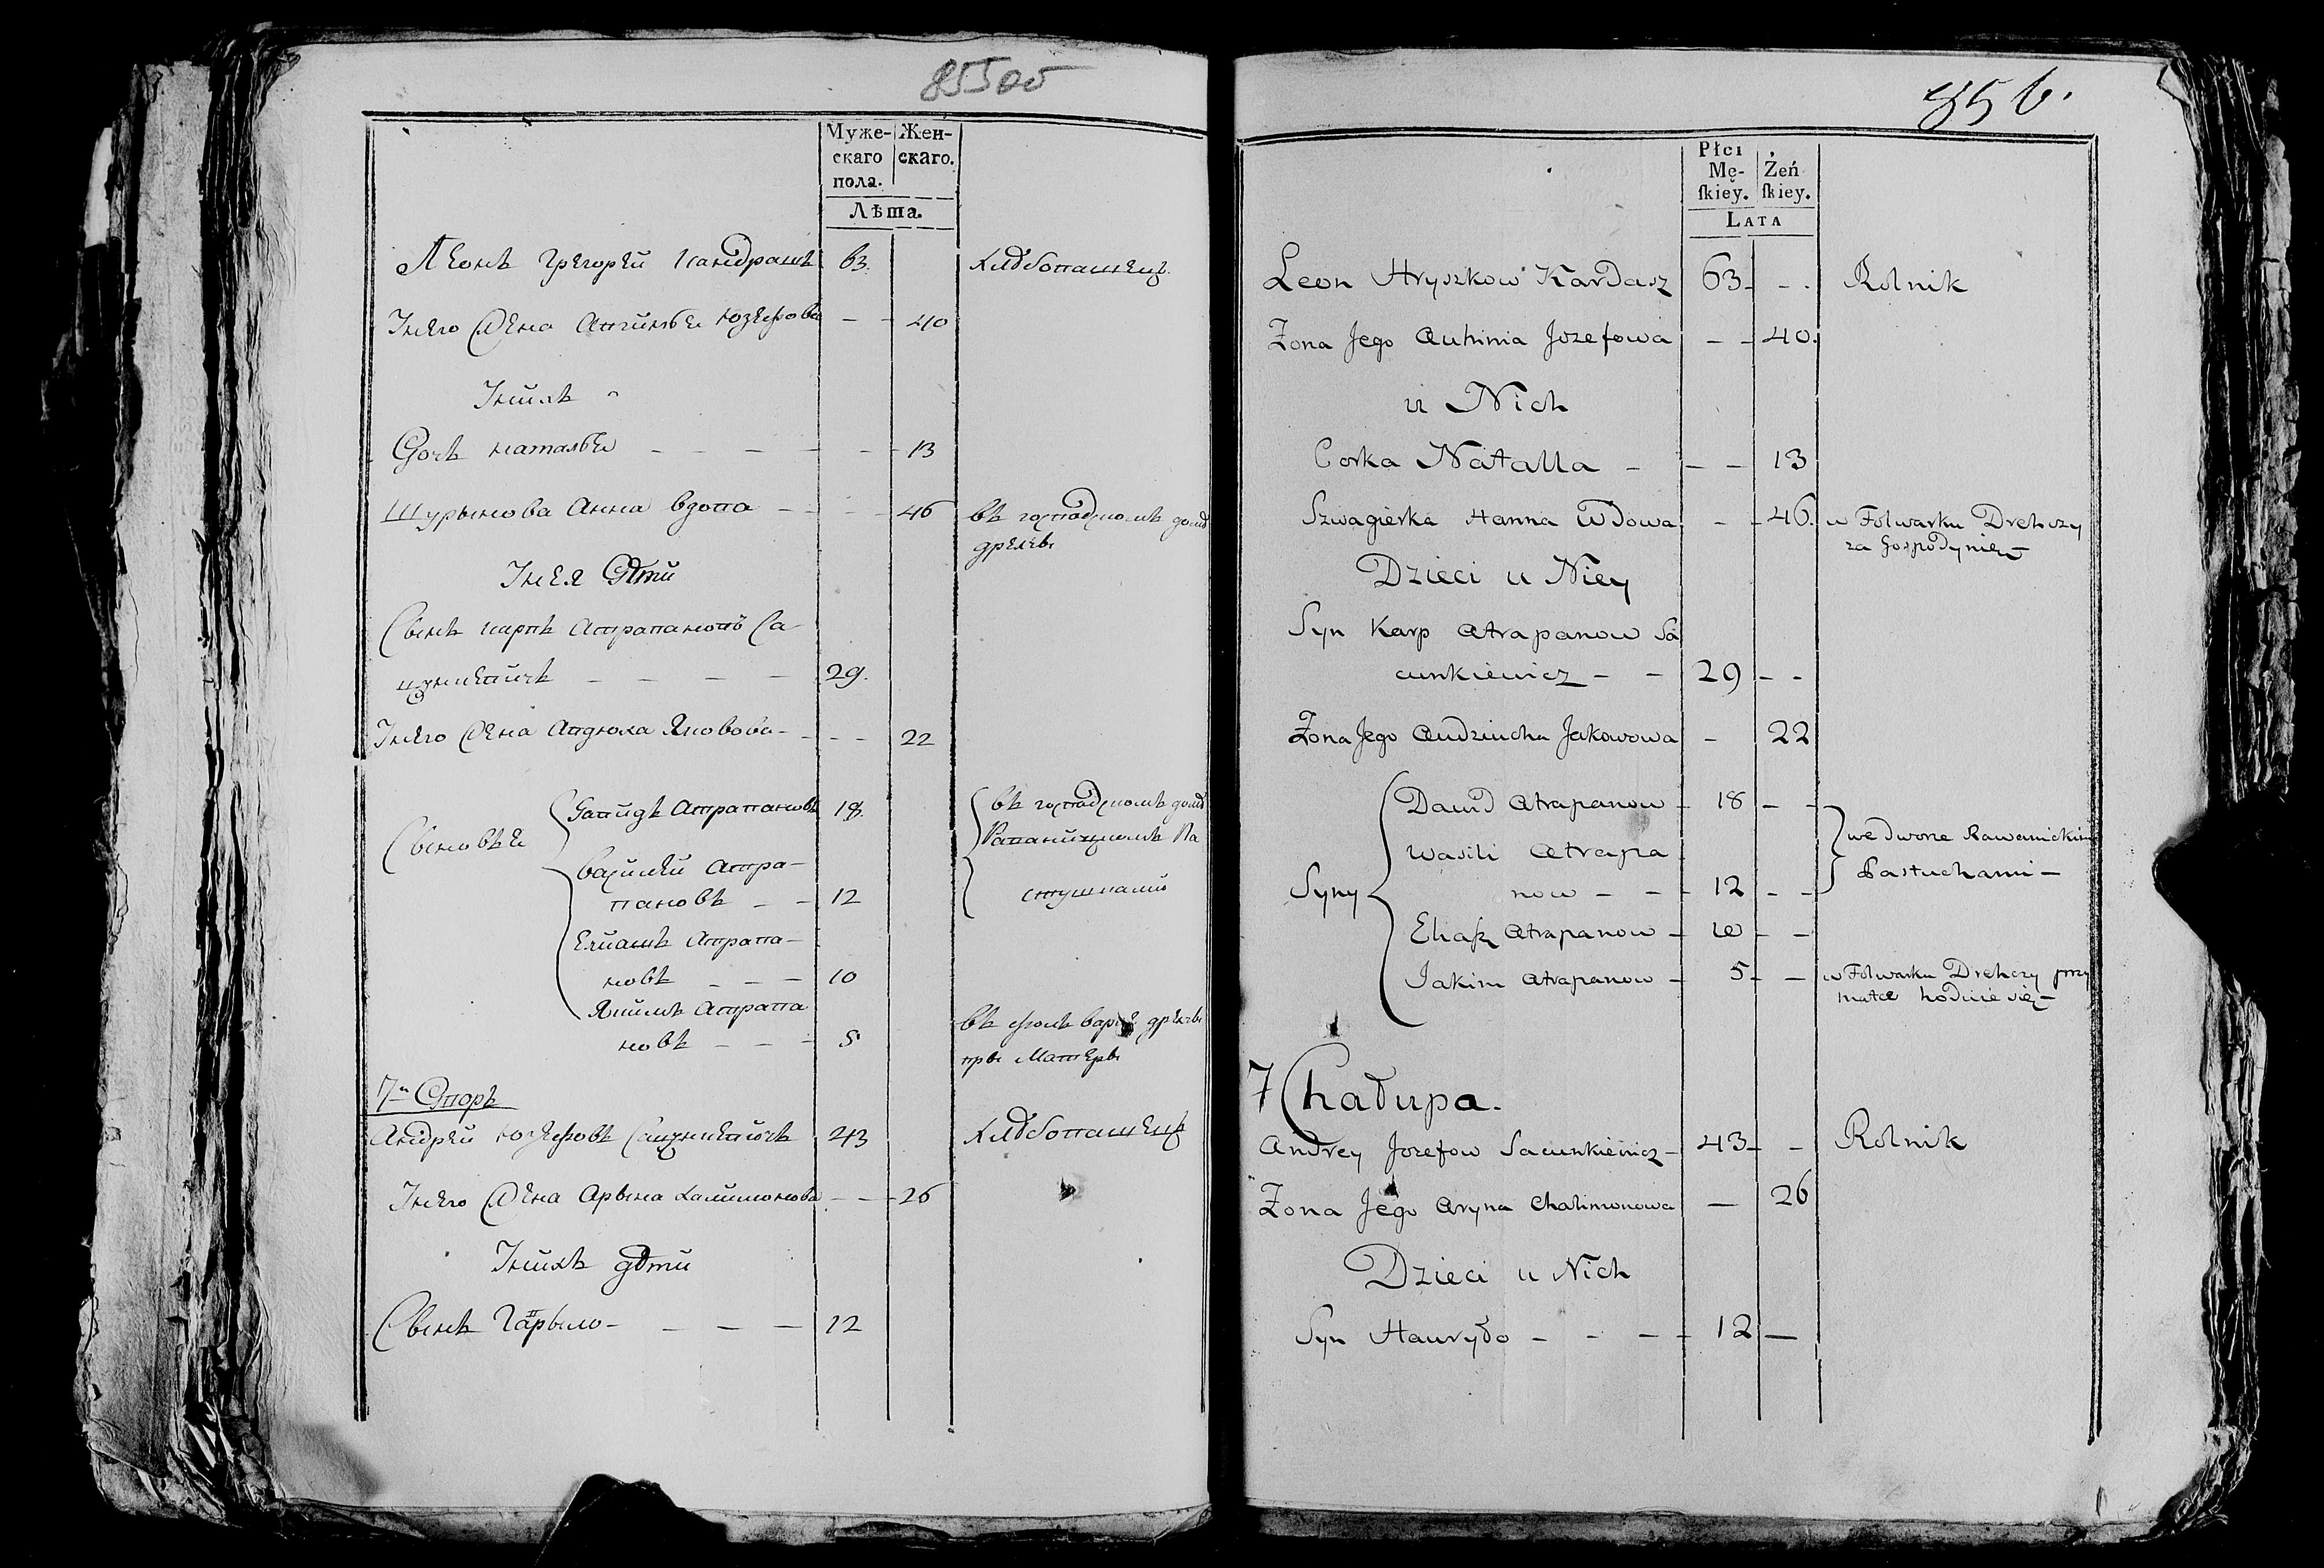 855об
Муже- Жен-
скаго скаго.
пола.
Лѣта.
Леонъ Грегорей Кандрашъ 63. Хлѣбопашецъ.
У него Жена Апгинъя Юзефова — — 40
У нихъ
Дочъ наталъя — — — — — — 13
Шурынова Анна вдова — — — 46 въ господскомъ домѣ
дрехчѣ
У нея Дѣти
Сынъ карпъ Атрапановъ Са-
цункевичъ — — — — 29.
У него Жена Авдюха Яковова — — — 22
Сыновъя
Давидъ Атрапановъ 18. въ господскомъ домѣ
Василей Атра- Раваницкомъ Па
пановъ — — 12 стушками
Елиашъ Атрапа-
новъ — — — 10
Якимъ Атрапа
новъ — — — 5 въ дрехчѣ
при Матери
7й Дворъ
Андрей Юзефовъ Сацункевичъ 43 Хлѣбопашецъ
У него Жена Арына Халимонова — — 26
У нихъ дѣти
Сынъ Гаврыло — — — — 12
856.
Płci
Mę- Żeń
ſkiey. ſkiey.
LATA
Leon Hryszkow Kardasz 63 — — Rolnik
Zona Jego Auhinia Jozefowa — — 40.
u Nich
Corka Natalla — — — 13
Szwagierka Hanna Wdowa — — 46. w Folwarku Drehczy
za Gospodynię —
Dzieci u Niey
Syn Karp Atrapanow Sa
cunkiewicz — — 29 — —
Zona Jego Audziucha Jakowowa — 22
Syny
Dawid Atrapanow — 18 — — we dworze Rawanickim
Wasili Atrapa Pastuchami —
now — — 12 — —
Eliaſz Atrapanow — 10 — —
Jakim Atrapanow — 5 — — w Folwarku Drehczy przy
matce hoduie się —
7 Chałupa.
Andrey Jozefow Sacunkiewicz — 43 — — Rolnik
Zona Jego Aryna Chalimonowa — 26
Dzieci u Nich
Syn Hauryło — — — 12 —